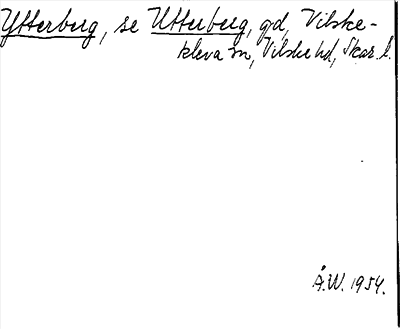 Ytterberg, se Utterberg, gd, Vilske-
kleva sn, Vilske hd, Skar. l.
Å.W. 1954.